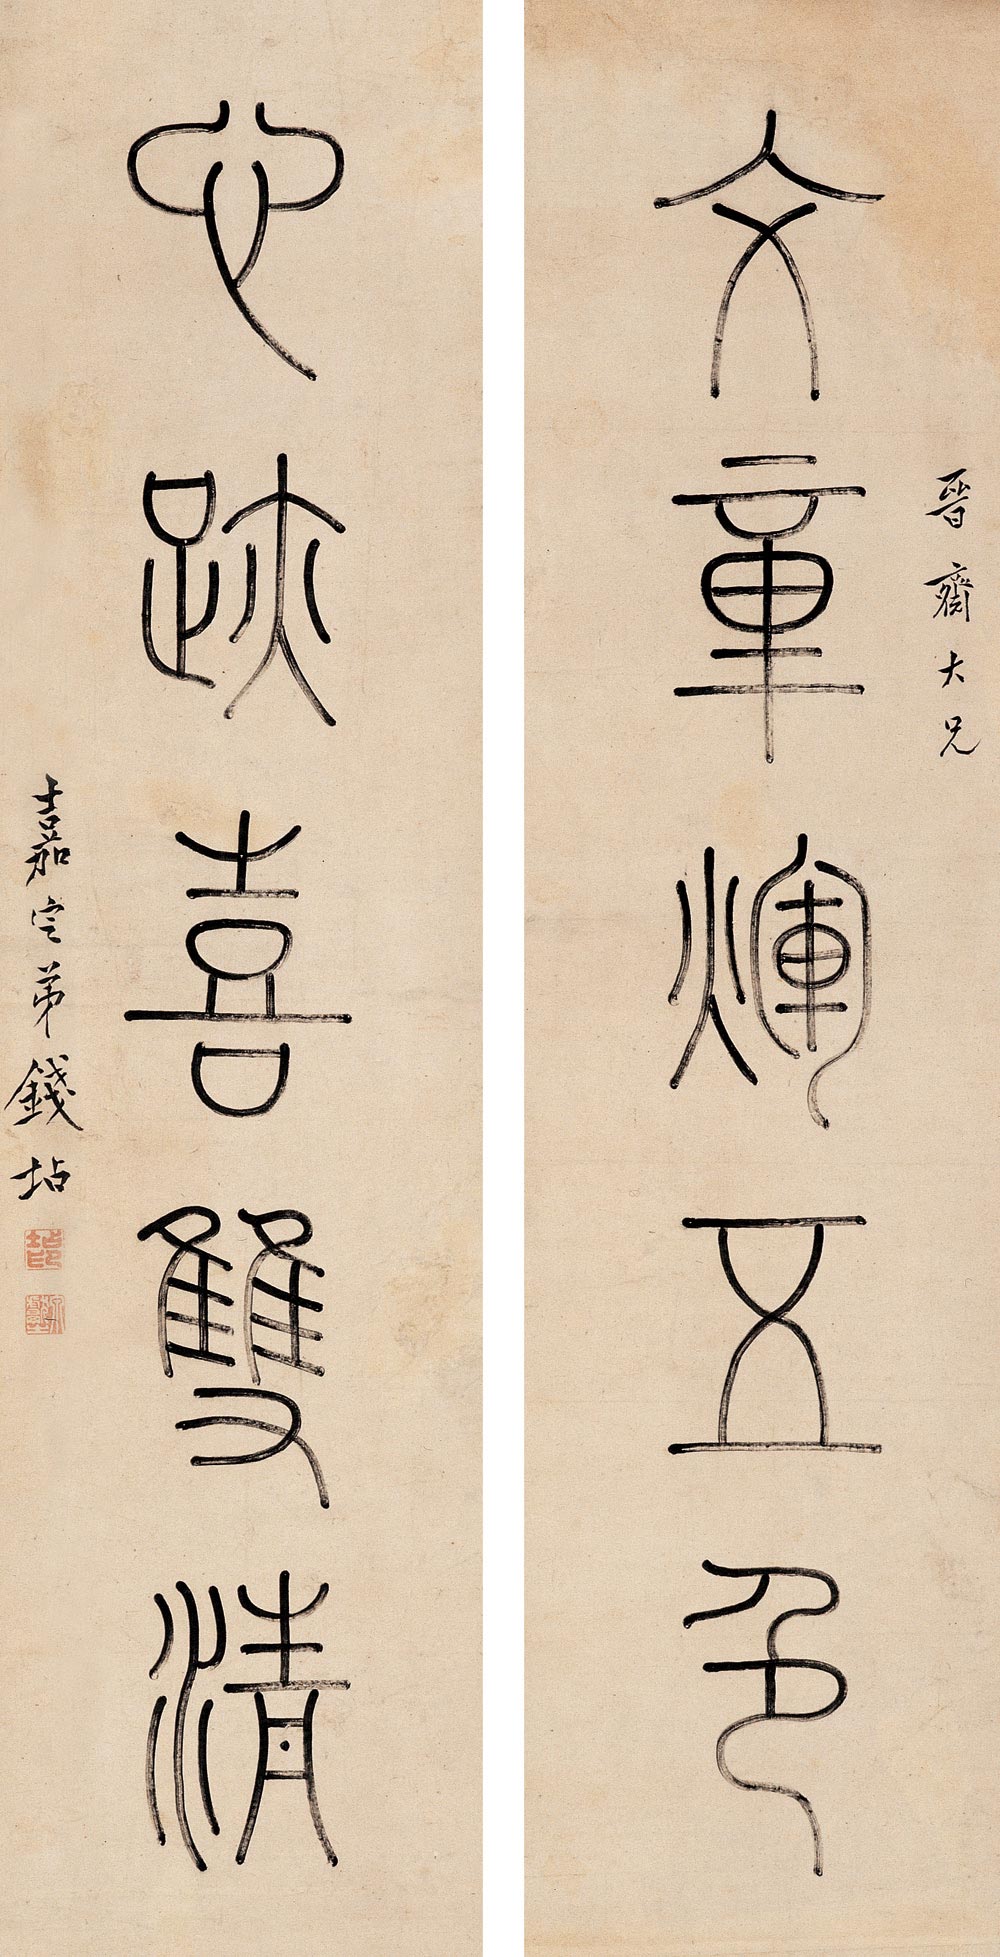 晋齋大兄
文章煇五色
心跡喜雙清
嘉定弟錢坫